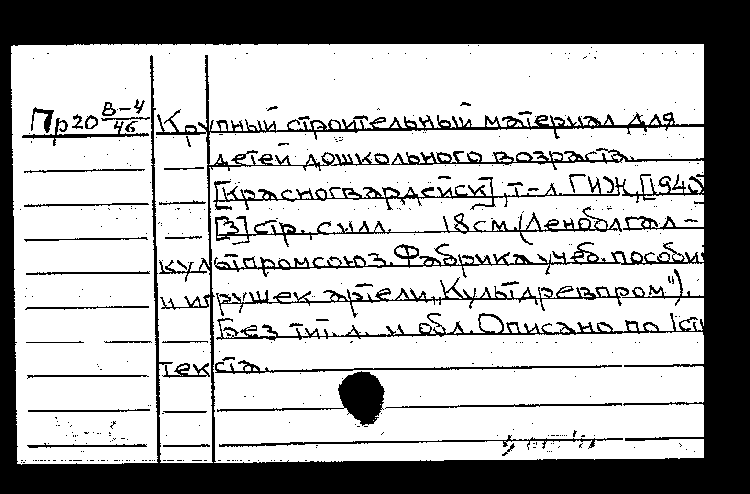 Пр20 В-4/46 Крупный строительный материал для
детей дошкольного возраста.
[Красногвардейск], т-л. ГИЖ, [1940]
[3] стр., с илл. 18 см. (Леноблгал-
культпромсоюз. Фабрика учеб. пособий
и игрушек артели „Культдревпром").
Без тит. л. и обл. Описано по 1 стр
текста.